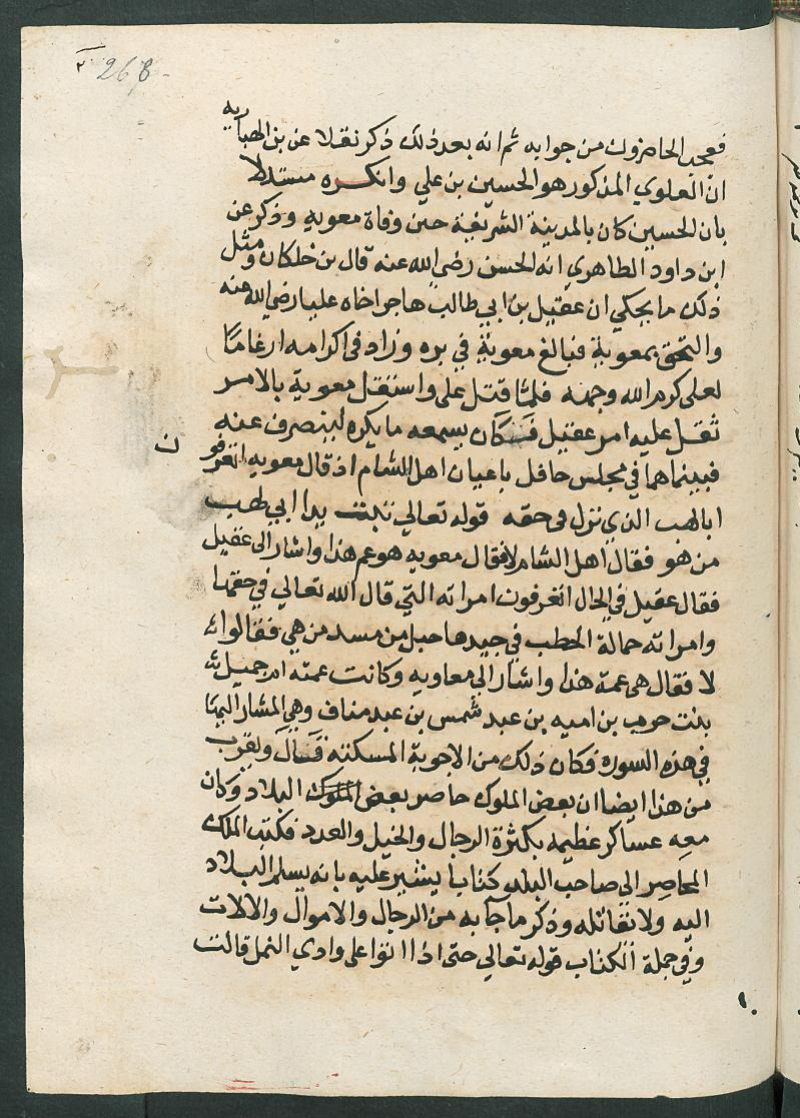 ٢ 268
فعجب الحاضرون من جوابه ثم انه بعد ذلك ذكر نقلا عن بن الهباريه
ان العلوي المذكور هو الحسين بن علي وانكره مستدلا
بان الحسين كان بالمدينة الشريفة حين وفاة معويه وذكر عن
ابن داود الطاهري انه الحسن رضي الله عنه قال بن خلكان ومثل
ذلك ما يحكي ان عقيل بن ابي طالب هاجر اخاه عليا رضي الله عنه
والتحق بمعوية فبالغ معوية في بره وزاد في اكرامه ارغاما
لعلي كرم الله وجهه فلما قتل على واستقل معوية بالامر
ثقل عليه امر عقيل فكان يسمعه ما يكره لينصرف عنه
فبينما هما في مجلس حافل باعيان اهل الشام اذ قال معويه اتعرفو
ن
ابا لهب الذي نزل في حقه قوله تعالي تبت يدا ابي لهب
من هو فقال اهل الشام لا فقال معويه هو عم هذا واشار الى عقيل
فقال عقيل في الحال اتعرفون امراته التي قال الله تعالي في حقها
وامراته حمالة الحطب في جيدها حبل من مسد من هي فقالوا
لا فقال هي عمة هذا واشار الي معاويه وكانت عمته ام جميل
بنت حرب بن اميه بن عبد شمس بن عبد مناف وهي المشار اليها
في هذه السورة فكان ذلك من الاجوبة المسكتة قال ويقرب
من هذا ايضا ان بعض الملوك حاصر بعض الملوك البلاد وكان
معه عساكر عظيمه بكثرة الرجال والخيل والعدد فكتب الملك
المحاصر الى صاحب البلد كتابا يشير عليه بانه يسلم البلاد
اليه ولا يقاتله وذكر ما جآ به من الرجال والاموال والالات
وفي جملة الكتاب قوله تعالي حتى اذا اتوا على وادي النمل قالت